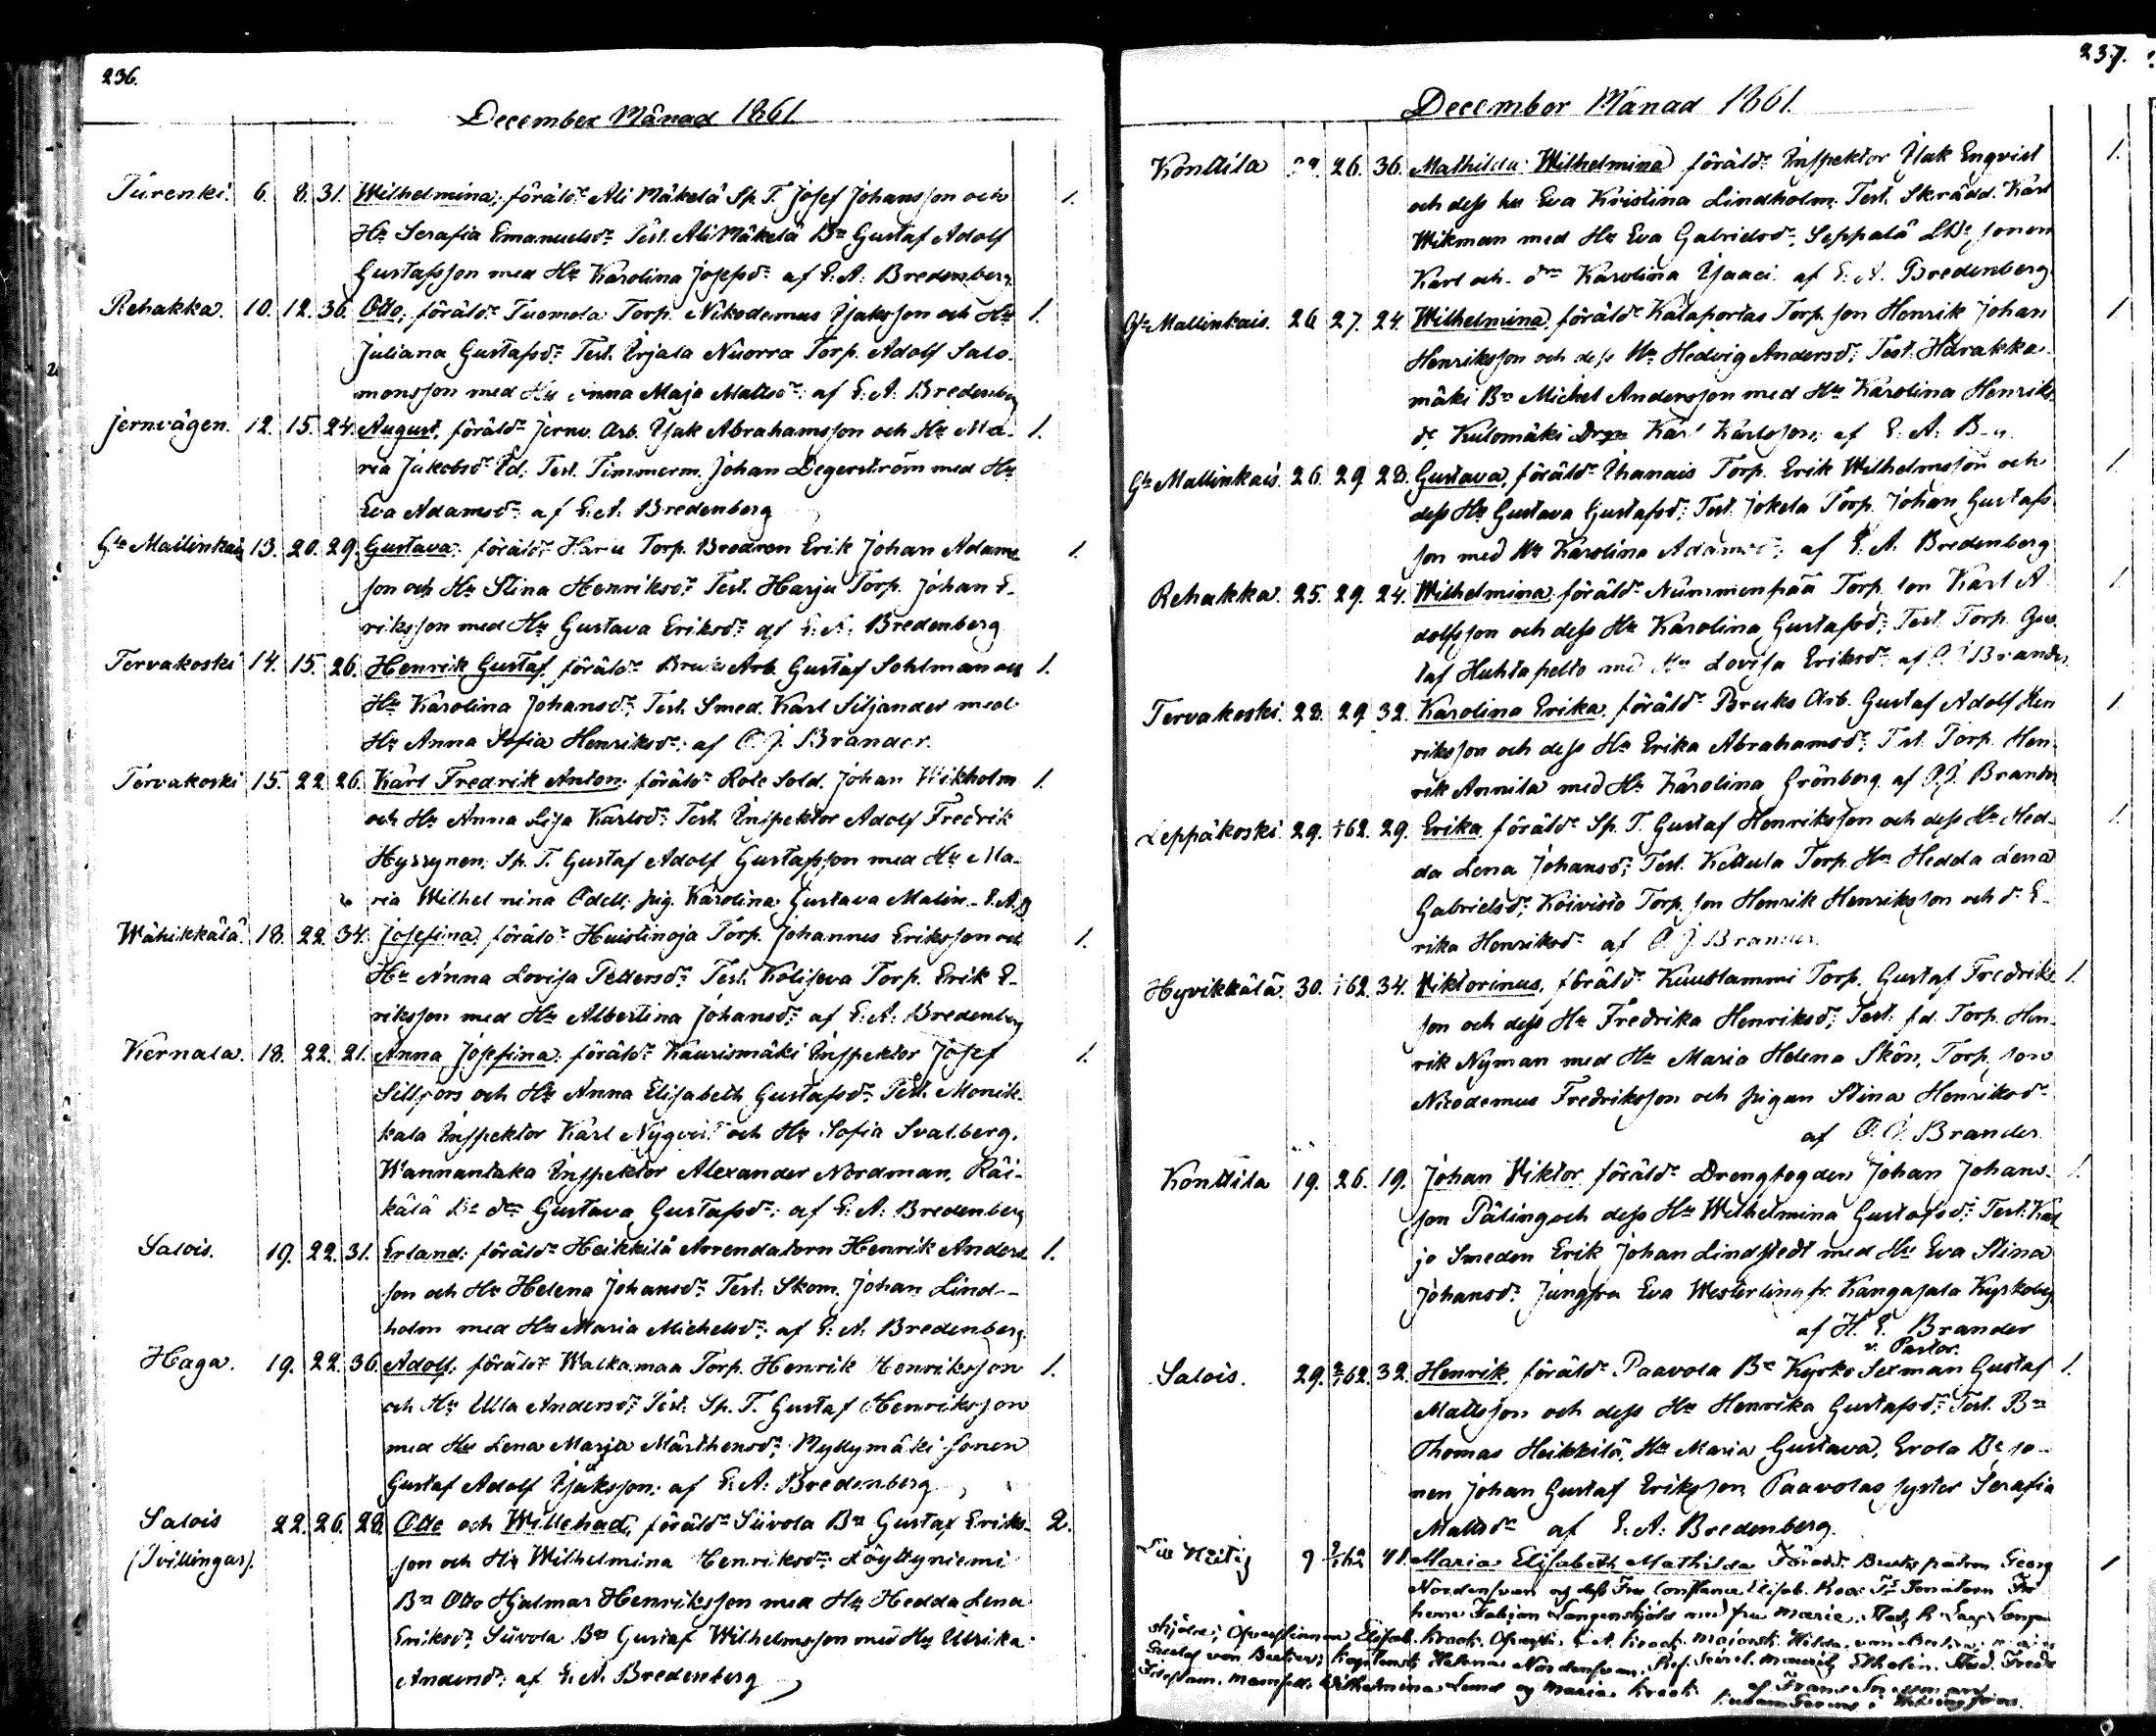 236.
December Månad 1861
Turenki. 6. 8. 31. Wilhelmina, föräldr Ali Mäkelä Sp. T. Josef Johansson och 1.
Hu Serafia Emanuelsdr. Test. Ali Mäkelä Bn Gustaf Adolf
Gustafsson med Hu Karolina Josefsdr af E. A. Bredenberg.
Rehakka. 10. 12. 36. Otto, föräldr Tuomola Torp. Nikodemus Isaksson och Hu 1.
Juliana Gustafsdr. Test. Urjala Nuorra Torp. Adolf Salo-
monsson med Hu Anna Maja Mattsdr: af E. A. Bredenberg
Jernvägen. 12. 15. 24. August, föräldr Jernv. Arb. Isak Abrahamsson och Hu Ma- 1.
ria Jakobsdr Test. Timmerm. Johan Legerström med Hu
Eva Adamsdr af E. A. Bredenberg
Gla Mallinkais 13. 20. 29. Gustava, föräldr Harju Torp. Brodren Erik Johan Adams- 1.
son och Hu Stina Henriksdr. Test. Harju Torp. Johan E-
riksson med Hu Gustava Eriksdr af E. A. Bredenberg
Tervakoski 14. 15. 26. Henrik Gustaf, föräldr Bruks Arb. Gustaf Sohlman och 1.
Hu Karolina Johansdr, Test. Smed. Karl Siljander med
Hu Anna Sofia Henriksdr; af O. J. Brander.
Tervakoski 15. 22. 26. Karl Fredrik Anton, föräldr Rote Sold. Johan Wikholm 1.
och Hu Anna Lisa Karlsdr. Test. Inspektor Adolf Fredrik
Hyssynen, Sp. T. Gustaf Adolf Gustafsson med Hu Ma-
ria Wilhelmina Ödell, pig. Karolina Gustava Malin. E. A. B
Wähikkälä 18. 22. 34. Josefina, föräldr Huistinoja Torp. Johannes Eriksson och 1.
Hu Anna Lovisa Pettersdr Test. Koliseva Torp. Erik E-
riksson med Hu Albertina Johansdr, af E. A. Bredenberg
Kernala. 18. 22. 21. Anna Josefina, föräldr Kaurismäki Inspektor Josef 1.
Sillfors och Hu Anna Elisabeth Gustafsdr Test. Monik-
kala Inspektor Karl Nyqvist och Hu Sofia Svalberg.
Wannantaka Inspektor Alexander Nordman, Räi-
kälä Bn dr Gustava Gustafsdr: af E. A. Bredenberg
Salois. 19. 22. 31. Erland: föräldr Heikkilä Arrendatorn Henrik Anders- 1.
son och Hu Helena Johansdr Test. Skom. Johan Lind-
holm med Hu Maria Michelsdr; af E. A. Bredenberg.
Haga. 19. 22. 36. Adolf, föräldr Walkamaa Torp. Henrik Henriksson 1.
och Hu Ulla Andersdr, Test. Sp. T. Gustaf Henriksson
med Hu Lena Marja Mårthensdr, Myllymäki sonen
Gustaf Adolf Isaksson: af E. A. Bredenberg
Salois 22. 26. 28. Otto och Willehad, föräldr Siivola Bn Gustaf Eriks- 2.
(Tvillingar). son och Hu Wilhelmina Henriksdr: Löyttyniemi
Bn Otto Hjalmar Henriksson med Hu Hedda Lena
Eriksdr, Siivola Bn Gustaf Wilhelmsson med Hu Ulrika
Andersdr; af E. A. Bredenberg
237.
December Månad 1861.
Konttila 26. 36. Mathilda Wilhelmina föräldr Inspektor Isak Engvist 1.
och dess hu Eva Kristina Lindholm. Test. Skrädd. Karl
Wikman med Hu Eva Gabrielsdr, Seppälä sonen
Karl och dr Karolina Isaaci af E. A. Bredenberg
Gla Mallinkais. 26 27. 24. Wilhelmina, föräldr Kataportas Torp. son Henrik Johan 1
Henriksson och dess Hu Hedvig Andersdr, Test. Harakka-
mäki Bn Michel Andersson med Hu Karolina Henriks-
dr, Kulomäki Drgn Karl Karlsson; af E. A. B
Gla Mallinkais. 26. 29 28. Gustava, föräldr Ihanais Torp. Erik Wilhelmsson och 1
dess Hu Gustava Gustafsdr, Test. Jokela Torp. Johan Gustafs-
son med Hu Karolina Adamsdr; af E. A. Bredenberg
Rehakka. 25. 29. 24. Wilhelmina, föräldr Nummenpää Torp. son Karl A- 1
dolfsson och dess Hu Karolina Gustafsdr, Test. Torp. Gus-
taf Huhtapelto med Hu Lovisa Eriksdr af O. J. Brander.
Tervakoski. 28. 29 32. Karolina Erika, föräldr Bruks Arb. Gustaf Adolf Hen- 1
riksson och dess Hu Erika Abrahamsdr, Test. Torp. Hen-
rik Annila med Hu Karolina Grönberg af O. J. Brander
Leppäkoski 29. 1/1 62. 29. Erika, föräldr Sp. T. Gustaf Henriksson och dess Hu Hed- 1
da Lena Johansdr, Test. Kettula Torp. Hu Hedda Lena
Gabrielsdr, Koivisto Torp. son Henrik Henriksson och dr E-
rika Henriksdr af O. J. Brander.
Hyvikkälä. 30. 1/1 62. 34. Viktorinus, föräldr Kuustammi Torp. Gustaf Fredriks- 1.
son och dess Hu Fredrika Henriksdr, Test. fd. Torp. Hen-
rik Nyman med Hu Maria Helena Skön, Torp. son
Nicodemus Fredriksson och pigan Stina Henriksdr
af O. J. Brander.
Konttila 19. 26. 19. Johan Viktor, föräldr Drengfogden Johan Johans- 1.
son Påling och dess Hu Wilhelmina Gustafsdr; Test. Kar-
jo Smeden Erik Johan Lindstedt med Hu Eva Stina
Johansdr. Jungfru Eva Westerling fr. Kangasala Kyrkoby
af H. E. Brander
v. Pastor.
Salois. 29. 2/1 62. 32. Henrik, föräldr Paavola Bn Kyrko Sexman Gustaf 1.
Mattsson och dess Hu Henrika Gustafsdr, Test. Bn
Thomas Heikkilä, Hu Maria Gustava, Erola Bn so-
nen Johan Gustaf Eriksson, Paavolas syster Serafia
Mattsdr af E. A. Bredenberg.
9 41. Maria Elisabeth Mathilda Föräldr. Brukspatron Georg 1
Nordensvan og dess Fru Constance Elisab. Fri-
herre Fabian Langenskjöld med fru Maria
skjöld; Elisab.
Helena Nordensvan.
Wilhelmina Lund og Maria af Frans